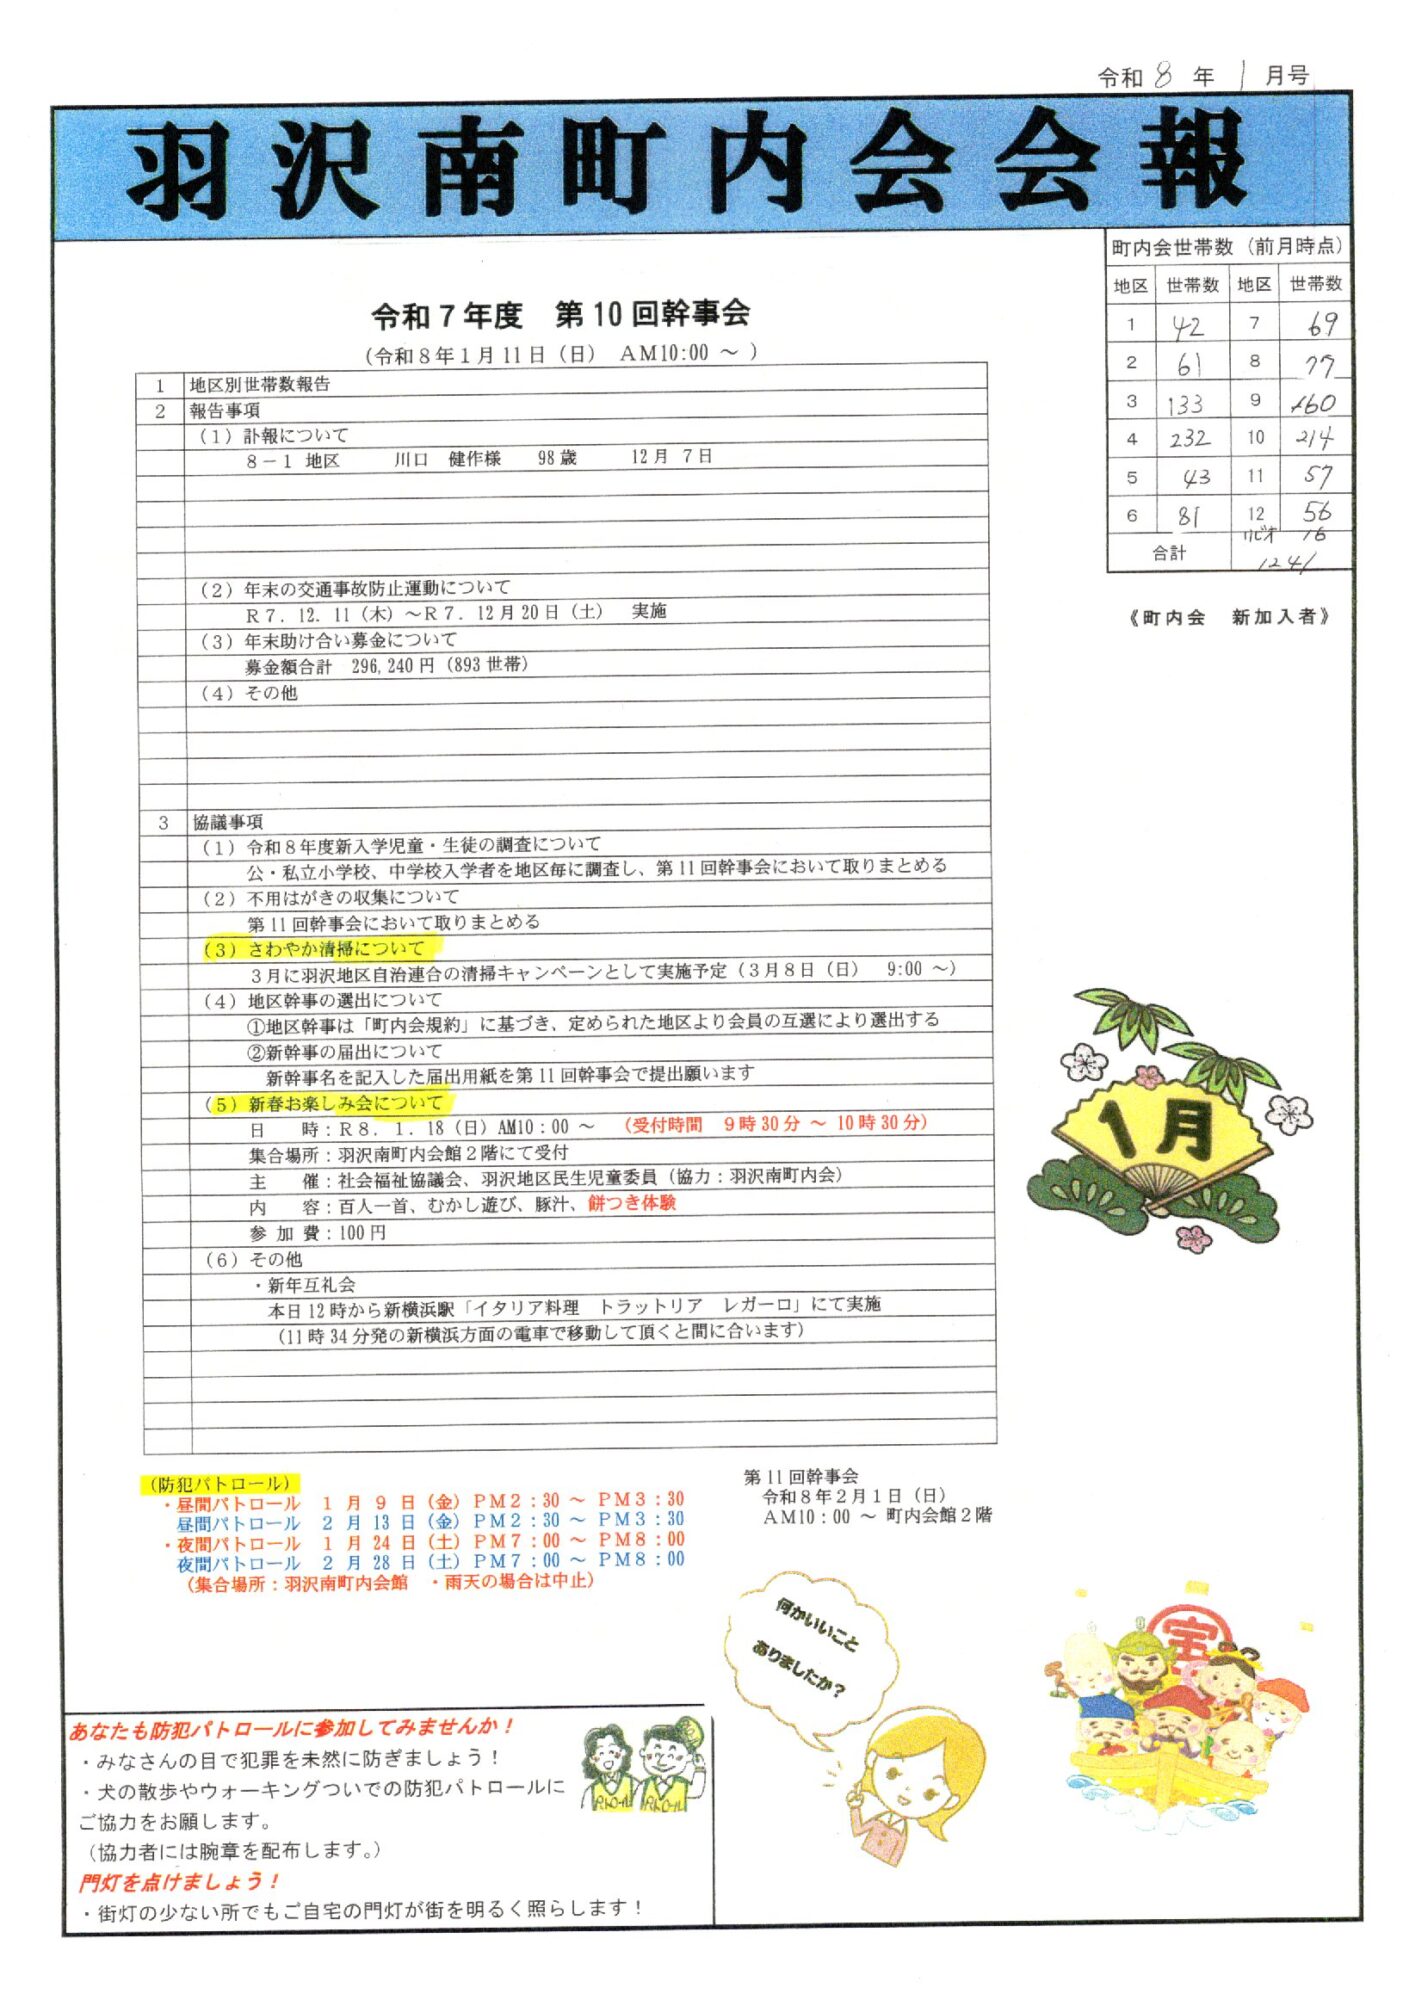 令和 8 年 1 月号
羽沢南町内会会報
町内会世帯数（前月時点）
地区 世帯数 地区 世帯数
1 42 7 69
2 61 8 77
3 133 9 160
4 232 10 214
5 43 11 57
6 81 12 56
リビオ 16
合計 1241
《町内会　新加入者》
令和７年度　第10回幹事会
（令和８年１月11日（日）　AM10:00 ～ ）
1 地区別世帯数報告
2 報告事項
（１）訃報について
８－１ 地区　川口　健作様　98歳　12月 7日
（２）年末の交通事故防止運動について
Ｒ７．12．11（木）～Ｒ７．12月20日（土）　実施
（３）年末助け合い募金について
募金額合計　296,240円（893世帯）
（４）その他
3 協議事項
（１）令和８年度新入学児童・生徒の調査について
公・私立小学校、中学校入学者を地区毎に調査し、第11回幹事会において取りまとめる
（２）不用はがきの収集について
第11回幹事会において取りまとめる
（３）さわやか清掃について
３月に羽沢地区自治連合の清掃キャンペーンとして実施予定（３月８日（日）　9:00 ～）
（４）地区幹事の選出について
①地区幹事は「町内会規約」に基づき、定められた地区より会員の互選により選出する
②新幹事の届出について
新幹事名を記入した届出用紙を第11回幹事会で提出願います
（５）新春お楽しみ会について
日　　時：Ｒ８．１．18（日）AM10：00 ～　（受付時間　９時30分 ～ 10時30分）
集合場所：羽沢南町内会館２階にて受付
主　　催：社会福祉協議会、羽沢地区民生児童委員（協力：羽沢南町内会）
内　　容：百人一首、むかし遊び、豚汁、餅つき体験
参 加 費：100円
（６）その他
・新年互礼会
本日12時から新横浜駅「イタリア料理　トラットリア　レガーロ」にて実施
（11時34分発の新横浜方面の電車で移動して頂くと間に合います）
1月
（防犯パトロール）
・昼間パトロール　1 月 9 日（金）ＰＭ２：30 ～ ＰＭ３：30
昼間パトロール　2 月 13 日（金）ＰＭ２：30 ～ ＰＭ３：30
・夜間パトロール　1 月 24 日（土）ＰＭ７：00 ～ ＰＭ８：00
夜間パトロール　2 月 28 日（土）ＰＭ７：00 ～ ＰＭ８：00
（集合場所：羽沢南町内会館　・雨天の場合は中止）
第11回幹事会
令和８年２月１日（日）
ＡＭ10：00 ～ 町内会館２階
何かいいこと
ありましたか？
宝
あなたも防犯パトロールに参加してみませんか！
・みなさんの目で犯罪を未然に防ぎましょう！
・犬の散歩やウォーキングついでの防犯パトロールに
ご協力をお願します。
（協力者には腕章を配布します。）
門灯を点けましょう！
・街灯の少ない所でもご自宅の門灯が街を明るく照らします！
パトロール パトロール